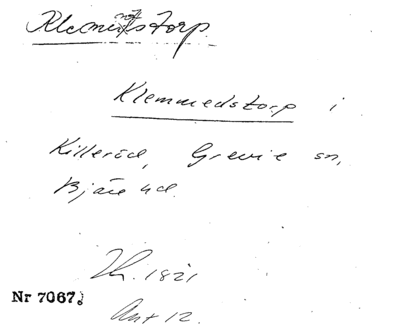 Klemmedstorp i
Killeröd, Grevie sn,
Bjäre hd.
1821
Nr 7067.
Ant 12.